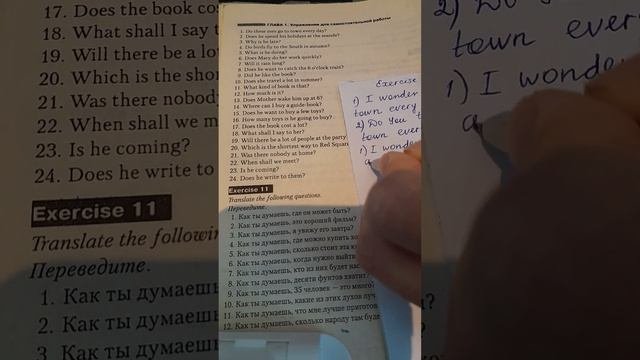 17. Does the book cos
18. What shall I say t
19. Will there be a lo
20. Which is the shor
21. Was there nobody
22. When shall we m
23. Is he coming?
24. Does he write to
Exercise 11
Translate the following
Переведите.
1. Как ты думаешь
2. Как ты думаешь
3. Как ты думаешь
ГЛАВА 1. Упражнения для самостоятельной работы
1. Do these men go to town every day?
2. Does he spend his holidays at the seaside?
3. Why is he late?
4. Do birds fly to the South in autumn?
5. What is he doing?
6. Does Mary do her work quickly?
7. Will it rain long?
8. Does he want to catch the 6 o'clock train?
9. Did he like the book?
10. Does she travel a lot in summer?
11. What kind of book is that?
12. How much is it?
13. Does Mother wake him up at 6?
14. Where can I buy a guide-book?
15. Does he want to buy a few toys?
16. How many toys is he going to buy?
17. Does the book cost a lot?
18. What shall I say to her?
19. Will there be a lot of people at the party
20. Which is the shortest way to Red Squar
21. Was there nobody at home?
22. When shall we meet?
23. Is he coming?
24. Does he write to them?
Exercise 11
Translate the following questions.
Переведите.
1. Как ты думаешь, где он может быть?
2. Как ты думаешь, это хороший фильм?
3. Как ты думаешь, я увижу его завтра?
4. Как ты думаешь, где можно купить хо
5. Как ты думаешь, сколько стоит эта к
6. Как ты думаешь, когда нужно выйти
7. Как ты думаешь, кто из них будет нас
8. Как ты думаешь, десяти фунтов хватит
9. Как ты думаешь, 35 человек — это много?
10. Как ты думаешь, какие из этих духов луч
11. Как ты думаешь, что мне лучше приготов
12. Как ты думаешь, сколько народу там буде
Exercise
1) I wonder
town every
2) Do you t
town ever
1) I wonde
a
2) Do
town every
1) I wonde
a